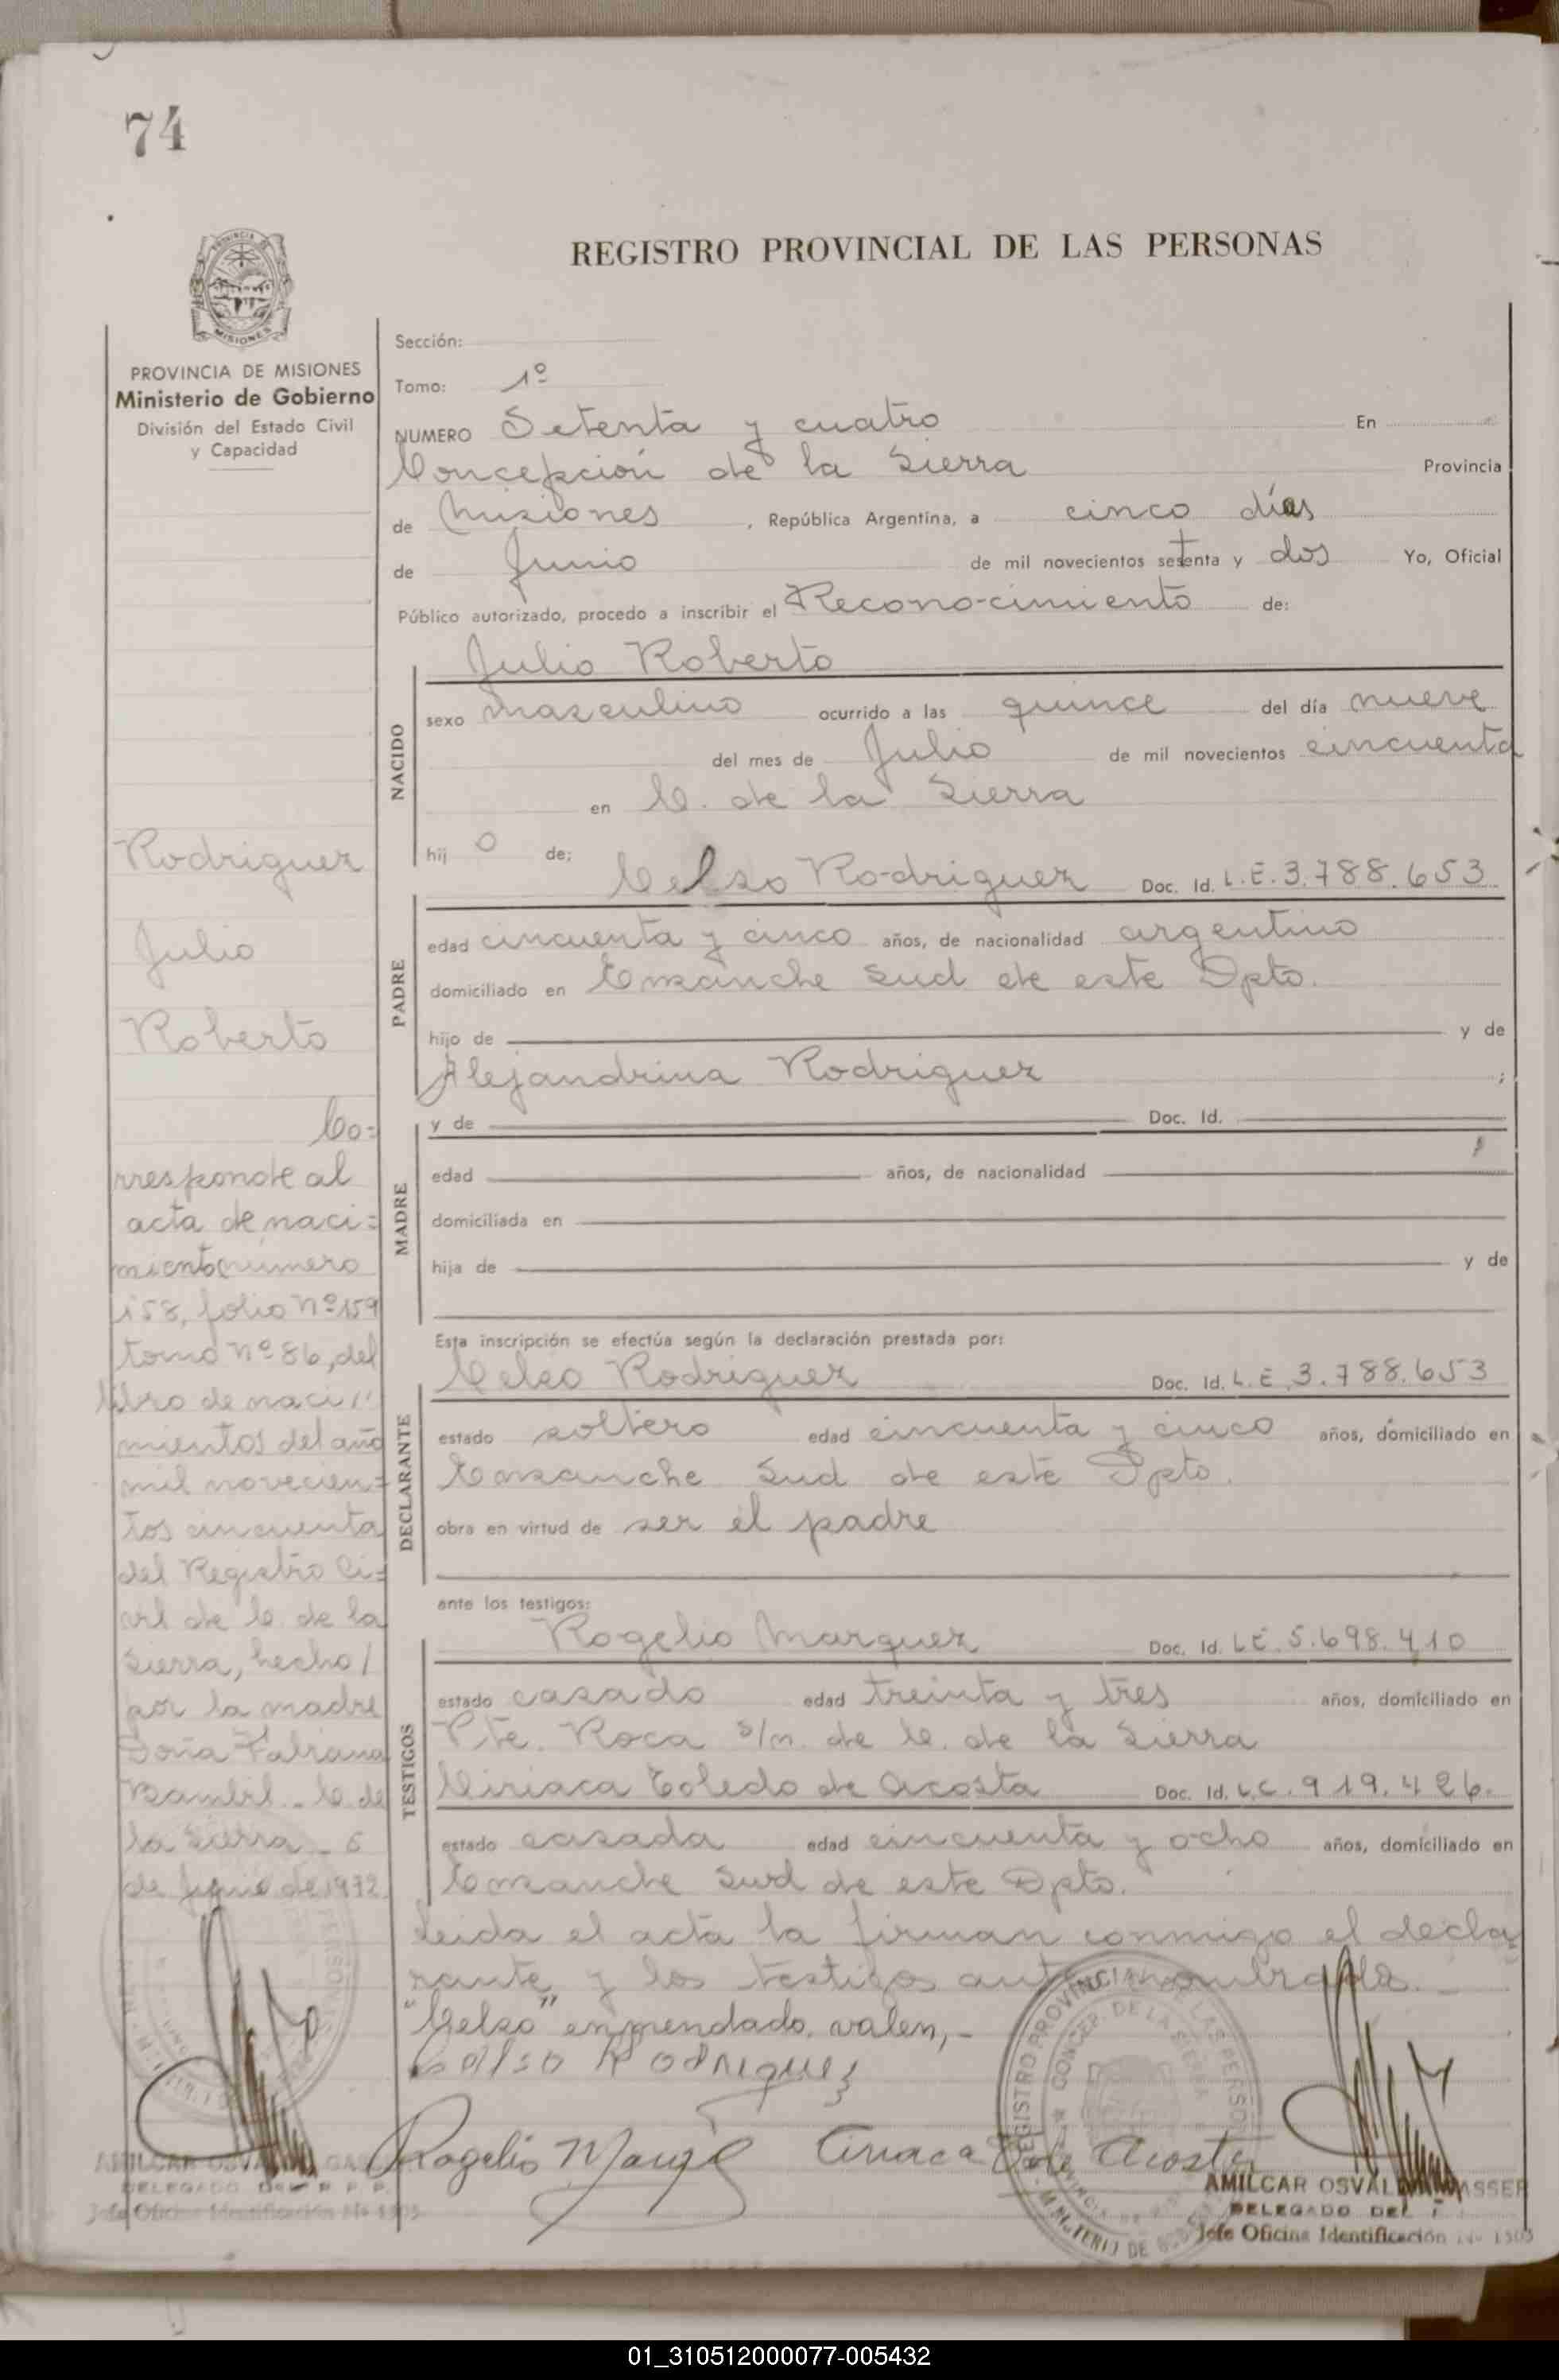 74
REGISTRO PROVINCIAL DE LAS PERSONAS
MISIONES
PROVINCIA DE MISIONES
Ministerio de Gobierno
División del Estado Civil
y Capacidad
Sección:
Tomo: 1º
NUMERO Setenta y cuatro En
Concepción de la Sierra Provincia
de Misiones , República Argentina, a cinco días
de Junio de mil novecientos setenta y dos Yo, Oficial
Público autorizado, procedo a inscribir el Reconocimiento de:
Julio Roberto
NACIDO
sexo masculino ocurrido a las quince del día nueve
del mes de Julio de mil novecientos cincuenta
en C. de la Sierra
hij o de:
Celso Rodriguez Doc. Id. L.E. 3.788.653
PADRE
edad cincuenta y cinco años, de nacionalidad argentino
domiciliado en Ensanche Sud de este Dpto.
hijo de y de
Alejandrina Rodriguez ;
MADRE
y de Doc. Id.
edad años, de nacionalidad
domiciliada en
hija de y de
Esta inscripción se efectúa según la declaración prestada por:
Celso Rodriguez Doc. Id. L.E. 3.788.653
DECLARANTE
estado soltero edad cincuenta y cinco años, domiciliado en
Ensanche Sud de este Dpto.
obra en virtud de ser el padre
ante los testigos:
Rogelio Marquez Doc. Id. L.E. 5.698.410
TESTIGOS
estado casado edad treinta y tres años, domiciliado en
Pte. Roca s/n. de C. de la Sierra
Ciriaca Toledo de Acosta Doc. Id. L.C. 919.426.
estado casada edad cincuenta y ocho años, domiciliado en
Ensanche Sud de este Dpto.
Leida el acta la firman conmigo el decla
rante y los testigos antes nombrados.-
"Celso" enmendado, valen,-
Celso Rodriguez
Rogelio Marquez Ciriaca T de Acosta
AMILCAR OSVALDO GASSER
DELEGADO DEL
Jefe Oficina Identificación Nº 1505
Rodriguez
Julio
Roberto
Co=
rresponde al
acta de naci=
miento número
158, folio Nº 159
tomo Nº 86, del
libro de naci //
mientos del año
mil novecien=
tos cincuenta
del Registro Ci=
vil de C. de la
Sierra, hecho /
por la madre
Doña Fabiana
Bambil.- C. de
la Sierra - 5
de Junio de 1972
AMILCAR OSVALDO GASSER
DELEGADO DEL R. P. P.
Jefe Oficina Identificación Nº 1505
REGISTRO PROVINCIAL DE LAS PERSONAS
CONCEP. DE LA SIERRA
MINISTERIO DE GOBIERNO
01_310512000077-005432